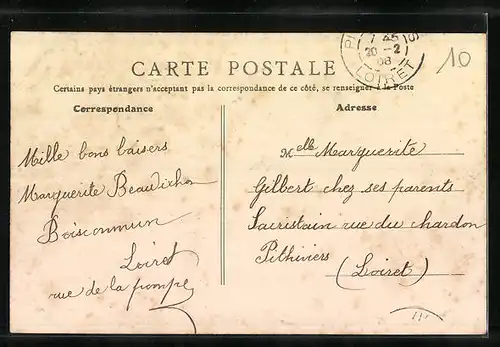 7 45
20 - 2
08
LOIRET
10
CARTE POSTALE
Certains pays étrangers n'acceptent pas la correspondance de ce côté, se renseigner à la Poste
Correspondance
Mille bons baisers
Marguerite
Boiscommun
Loiret
rue de la pompe
Adresse
Melle Marguerite
Gilbert chez ses parents
Sacristain rue du chardon
Pithiviers
(Loiret)